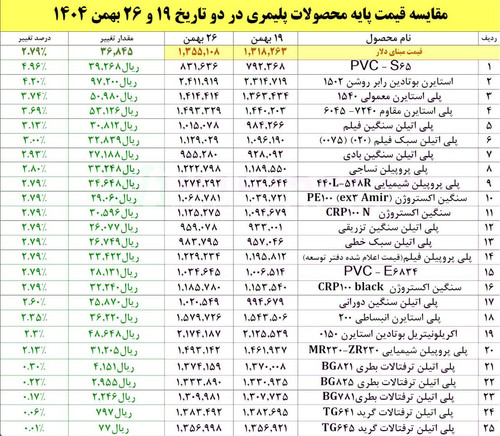 مقایسه قیمت پایه محصولات پلیمری در دو تاریخ ۱۹ و ۲۶ بهمن ۱۴۰۴
ردیف نام محصول ۱۹ بهمن ۲۶ بهمن تغییر درصد تغییر
قیمت مبنای دلار ۱,۳۱۸,۲۶۳ ۱,۳۵۵,۱۰۸ ۳۶,۸۴۵ ۲.۷۹%
۱ PVC - S۶۵ ۷۹۲,۳۶۸ ۸۳۱,۶۳۶ ریال۳۹,۲۶۸ ۴.۹۶%
۲ استایرن بوتادین رابر روشن ۱۵۰۲ ۲,۳۱۴,۷۱۹ ۲,۴۱۱,۹۱۹ ریال۹۷,۲۰۰ ۴.۲۰%
۳ پلی استایرن معمولی ۱۵۴۰ ۱,۳۶۳,۴۳۴ ۱,۴۱۴,۴۱۴ ریال۵۰,۹۸۰ ۳.۷۴%
۴ پلی استایرن مقاوم ۷۲۴۰- ۶۰۴۵ ۱,۴۴۰,۲۰۳ ۱,۴۹۳,۳۲۹ ریال۵۳,۱۲۶ ۳.۶۹%
۵ پلی اتیلن سنگین فیلم ۹۸۴,۲۶۶ ۱,۰۱۵,۰۷۸ ریال۳۰,۸۱۲ ۳.۱۳%
۶ پلی اتیلن سبک فیلم (۰۲۰) (۰۰۷۵) ۱,۰۹۶,۱۹۰ ۱,۱۲۹,۰۲۹ ریال۳۲,۸۳۹ ۳.۰۰%
۷ پلی اتیلن سنگین بادی ۹۲۸,۰۹۲ ۹۵۵,۲۸۰ ریال۲۷,۱۸۸ ۲.۹۳%
۸ پلی پروپیلن نساجی ۱,۱۸۹,۵۵۰ ۱,۲۲۲,۷۹۸ ریال۳۳,۲۴۸ ۲.۸۰%
۹ پلی پروپیلن شیمیایی ۴۴۰L-۵۴۸R ۱,۲۳۹,۶۴۴ ۱,۲۷۴,۲۹۲ ریال۳۴,۶۴۸ ۲.۷۹%
۱۰ سنگین اکستروژن PE۱۰۰ (ex۳ Amir) ۱,۰۳۹,۷۲۱ ۱,۰۶۸,۷۸۱ ریال۲۹,۰۶۰ ۲.۷۹%
۱۱ سنگین اکستروژن CRP۱۰۰ N ۱,۰۹۴,۶۷۹ ۱,۱۲۵,۲۷۵ ریال۳۰,۵۹۶ ۲.۷۹%
۱۲ پلی اتیلن سنگین تزریقی ۹۳۳,۰۰۱ ۹۵۹,۰۷۸ ریال۲۶,۰۷۷ ۲.۷۹%
۱۳ پلی اتیلن سبک خطی ۹۵۷,۰۴۶ ۹۸۳,۷۹۵ ریال۲۶,۷۴۹ ۲.۷۹%
۱۴ پلی پروپیلن فیلم(قیمت اعلام شده دفتر توسعه) ۱,۱۹۵,۸۱۲ ۱,۲۲۹,۲۳۴ ریال۳۳,۴۲۲ ۲.۷۹%
۱۵ PVC - E۶۸۳۴ ۱,۰۰۶,۵۱۴ ۱,۰۳۴,۶۴۵ ریال۲۸,۱۳۱ ۲.۷۹%
۱۶ سنگین اکستروژن CRP۱۰۰ black ۱,۱۵۳,۵۴۰ ۱,۱۸۵,۷۸۰ ریال۳۲,۲۴۰ ۲.۷۹%
۱۷ پلی اتیلن سنگین دورانی ۹۹۴,۶۷۹ ۱,۰۲۰,۵۴۹ ریال۲۵,۸۷۰ ۲.۶۰%
۱۸ پلی استایرن انبساطی ۲۰۰ ۱,۵۴۳,۵۰۶ ۱,۵۷۹,۷۲۶ ریال۳۶,۲۲۰ ۲.۳۵%
۱۹ اکریلونیتریل بوتادین استایرن ۰۱۵۰ ۲,۱۲۵,۵۳۹ ۲,۱۷۴,۱۸۷ ریال۴۸,۶۴۸ ۲.۳%
۲۰ پلی پروپیلن شیمیایی MR۲۳۰-ZR۲۳۰ ۱,۴۶۱,۹۳۷ ۱,۴۹۳,۱۴۲ ریال۳۱,۲۰۵ ۲.۱۳%
۲۱ پلی اتیلن ترفتالات بطری BG۸۲۱ ۱,۳۷۰,۰۰۸ ۱,۳۷۴,۱۵۹ ریال۴,۱۵۱ ۰.۳۰%
۲۲ پلی اتیلن ترفتالات بطری BG۸۲۵ ۱,۳۳۰,۹۳۵ ۱,۳۳۳,۸۹۰ ریال۲,۹۵۵ ۰.۲۲%
۲۳ پلی اتیلن ترفتالات بطری BG۷۸۱ ۱,۳۰۷,۷۳۵ ۱,۳۰۹,۹۸۱ ریال۲,۲۴۵ ۰.۱۷%
۲۴ پلی اتیلن ترفتالات گرید TG۶۴۱ ۱,۳۸۲,۶۹۵ ۱,۳۸۳,۴۹۲ ریال۷۹۷ ۰.۰۶%
۲۵ پلی اتیلن ترفتالات گرید TG۶۴۵ ۱,۳۵۶,۹۲۱ ۱,۳۵۶,۹۹۸ ریال۷۷ ۰.۰۱%